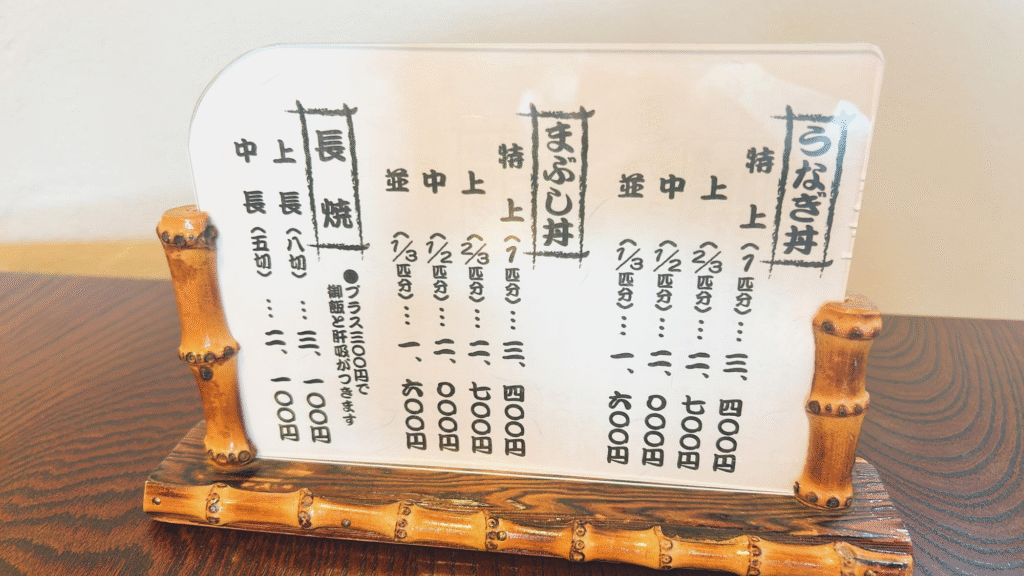 うなぎ丼
特上(1匹分)…三、四〇〇円
上(2/3匹分)…二、七〇〇円
中(1/2匹分)…二、〇〇〇円
並(1/3匹分)…一、六〇〇円
まぶし丼
特上(1匹分)…三、四〇〇円
上(2/3匹分)…二、七〇〇円
中(1/2匹分)…二、〇〇〇円
並(1/3匹分)…一、六〇〇円
長焼
●プラス三〇〇円で
御飯と肝吸がつきます
上長(八切)…三、一〇〇円
中長(五切)…二、一〇〇円